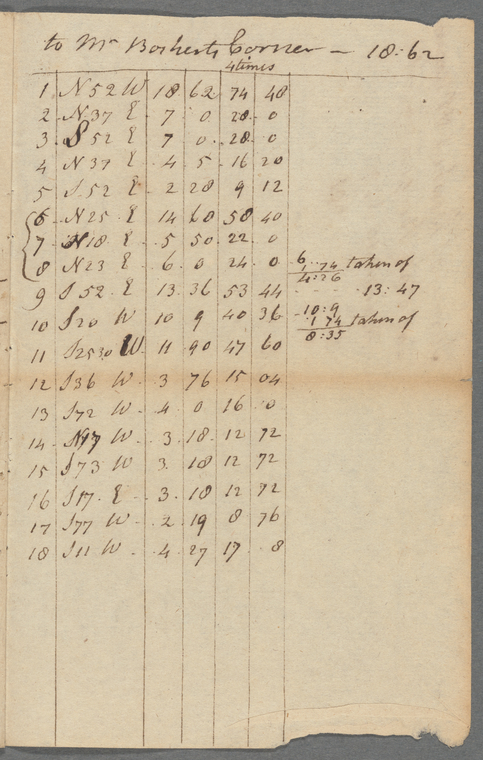 to Mr Bosherts Corner — 18:62
4 times
1 N 52 W 18 62 74 48
2 N 37 E 7 0 28 0
3 S 52 E 7 0 28 0
4 N 37 E 4 5 16 20
5 S 52 E 2 28 9 12
6 N 25 E 14 60 58 40
7 N 18 E 5 50 22 0
8 N 23 E 6 0 24 0 6
1 74 taken of
4:26
9 S 52 E 13 36 53 44 13:47
10 S 20 W 10 9 40 36 10:9
1 74 taken of
8:35
11 S 25 30 W 11 90 47 60
12 S 36 W 3 76 15 04
13 S 72 W 4 0 16 0
14 W 3 18 12 72
15 S 73 W 3 18 12 72
16 S 17 E 3 18 12 72
17 S 77 W 2 19 8 76
18 S 11 W 4 27 17 8